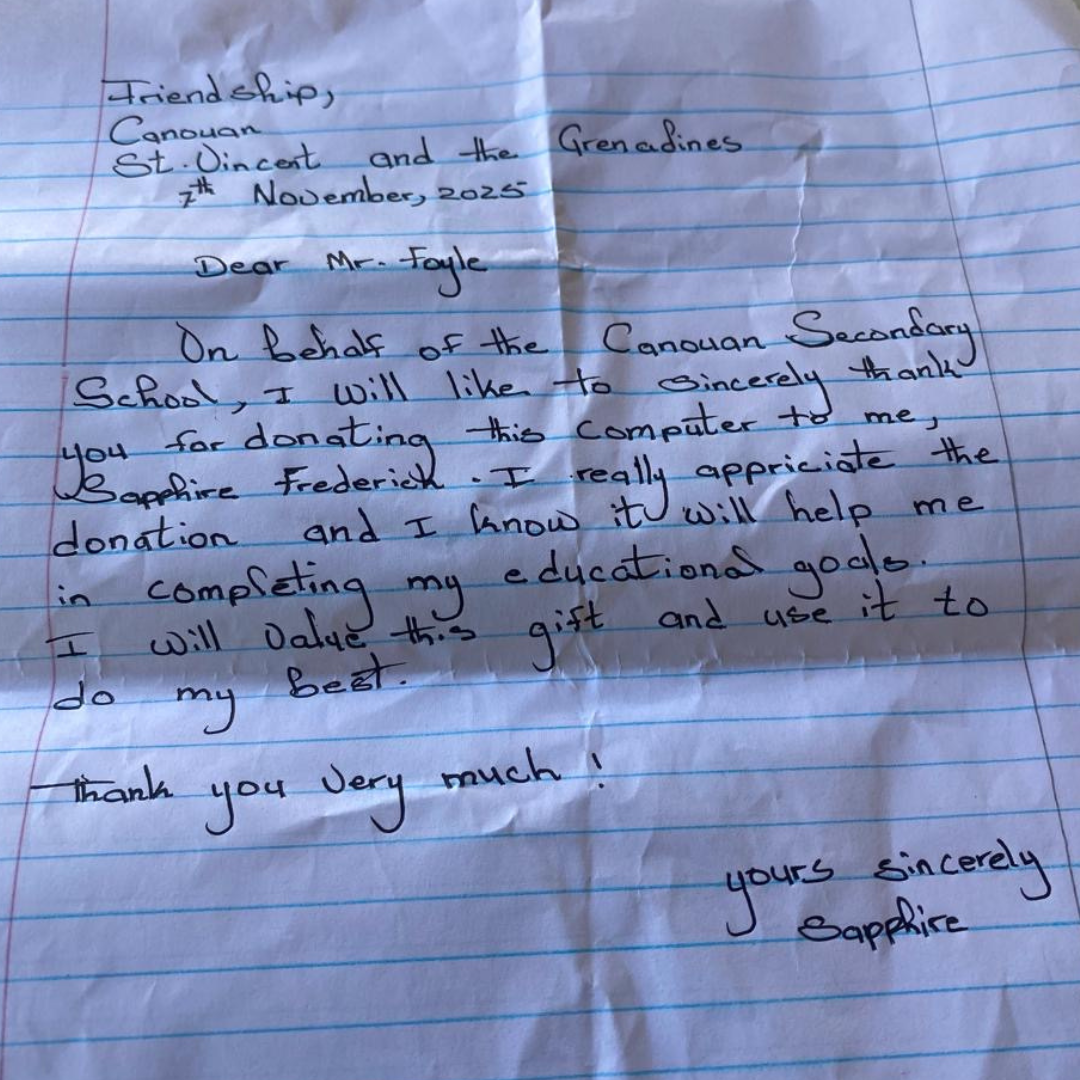 Friendship,
Canouan
St. Vincent and the Grenadines
7th November, 2025
Dear Mr. Foyle
On behalf of the Canouan Secondary
School, I will like to sincerely thank
you for donating this computer to me,
Sapphire Frederick. I really appriciate the
donation and I know it will help me
in completing my educational goals.
I will value this gift and use it to
do my best.
Thank you very much!
yours sincerely
Sapphire